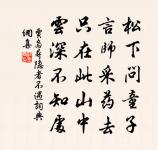 松下問童子
言師采药去
只在此山中
雲深不知處
賈島尋隱者不遇詞典
網